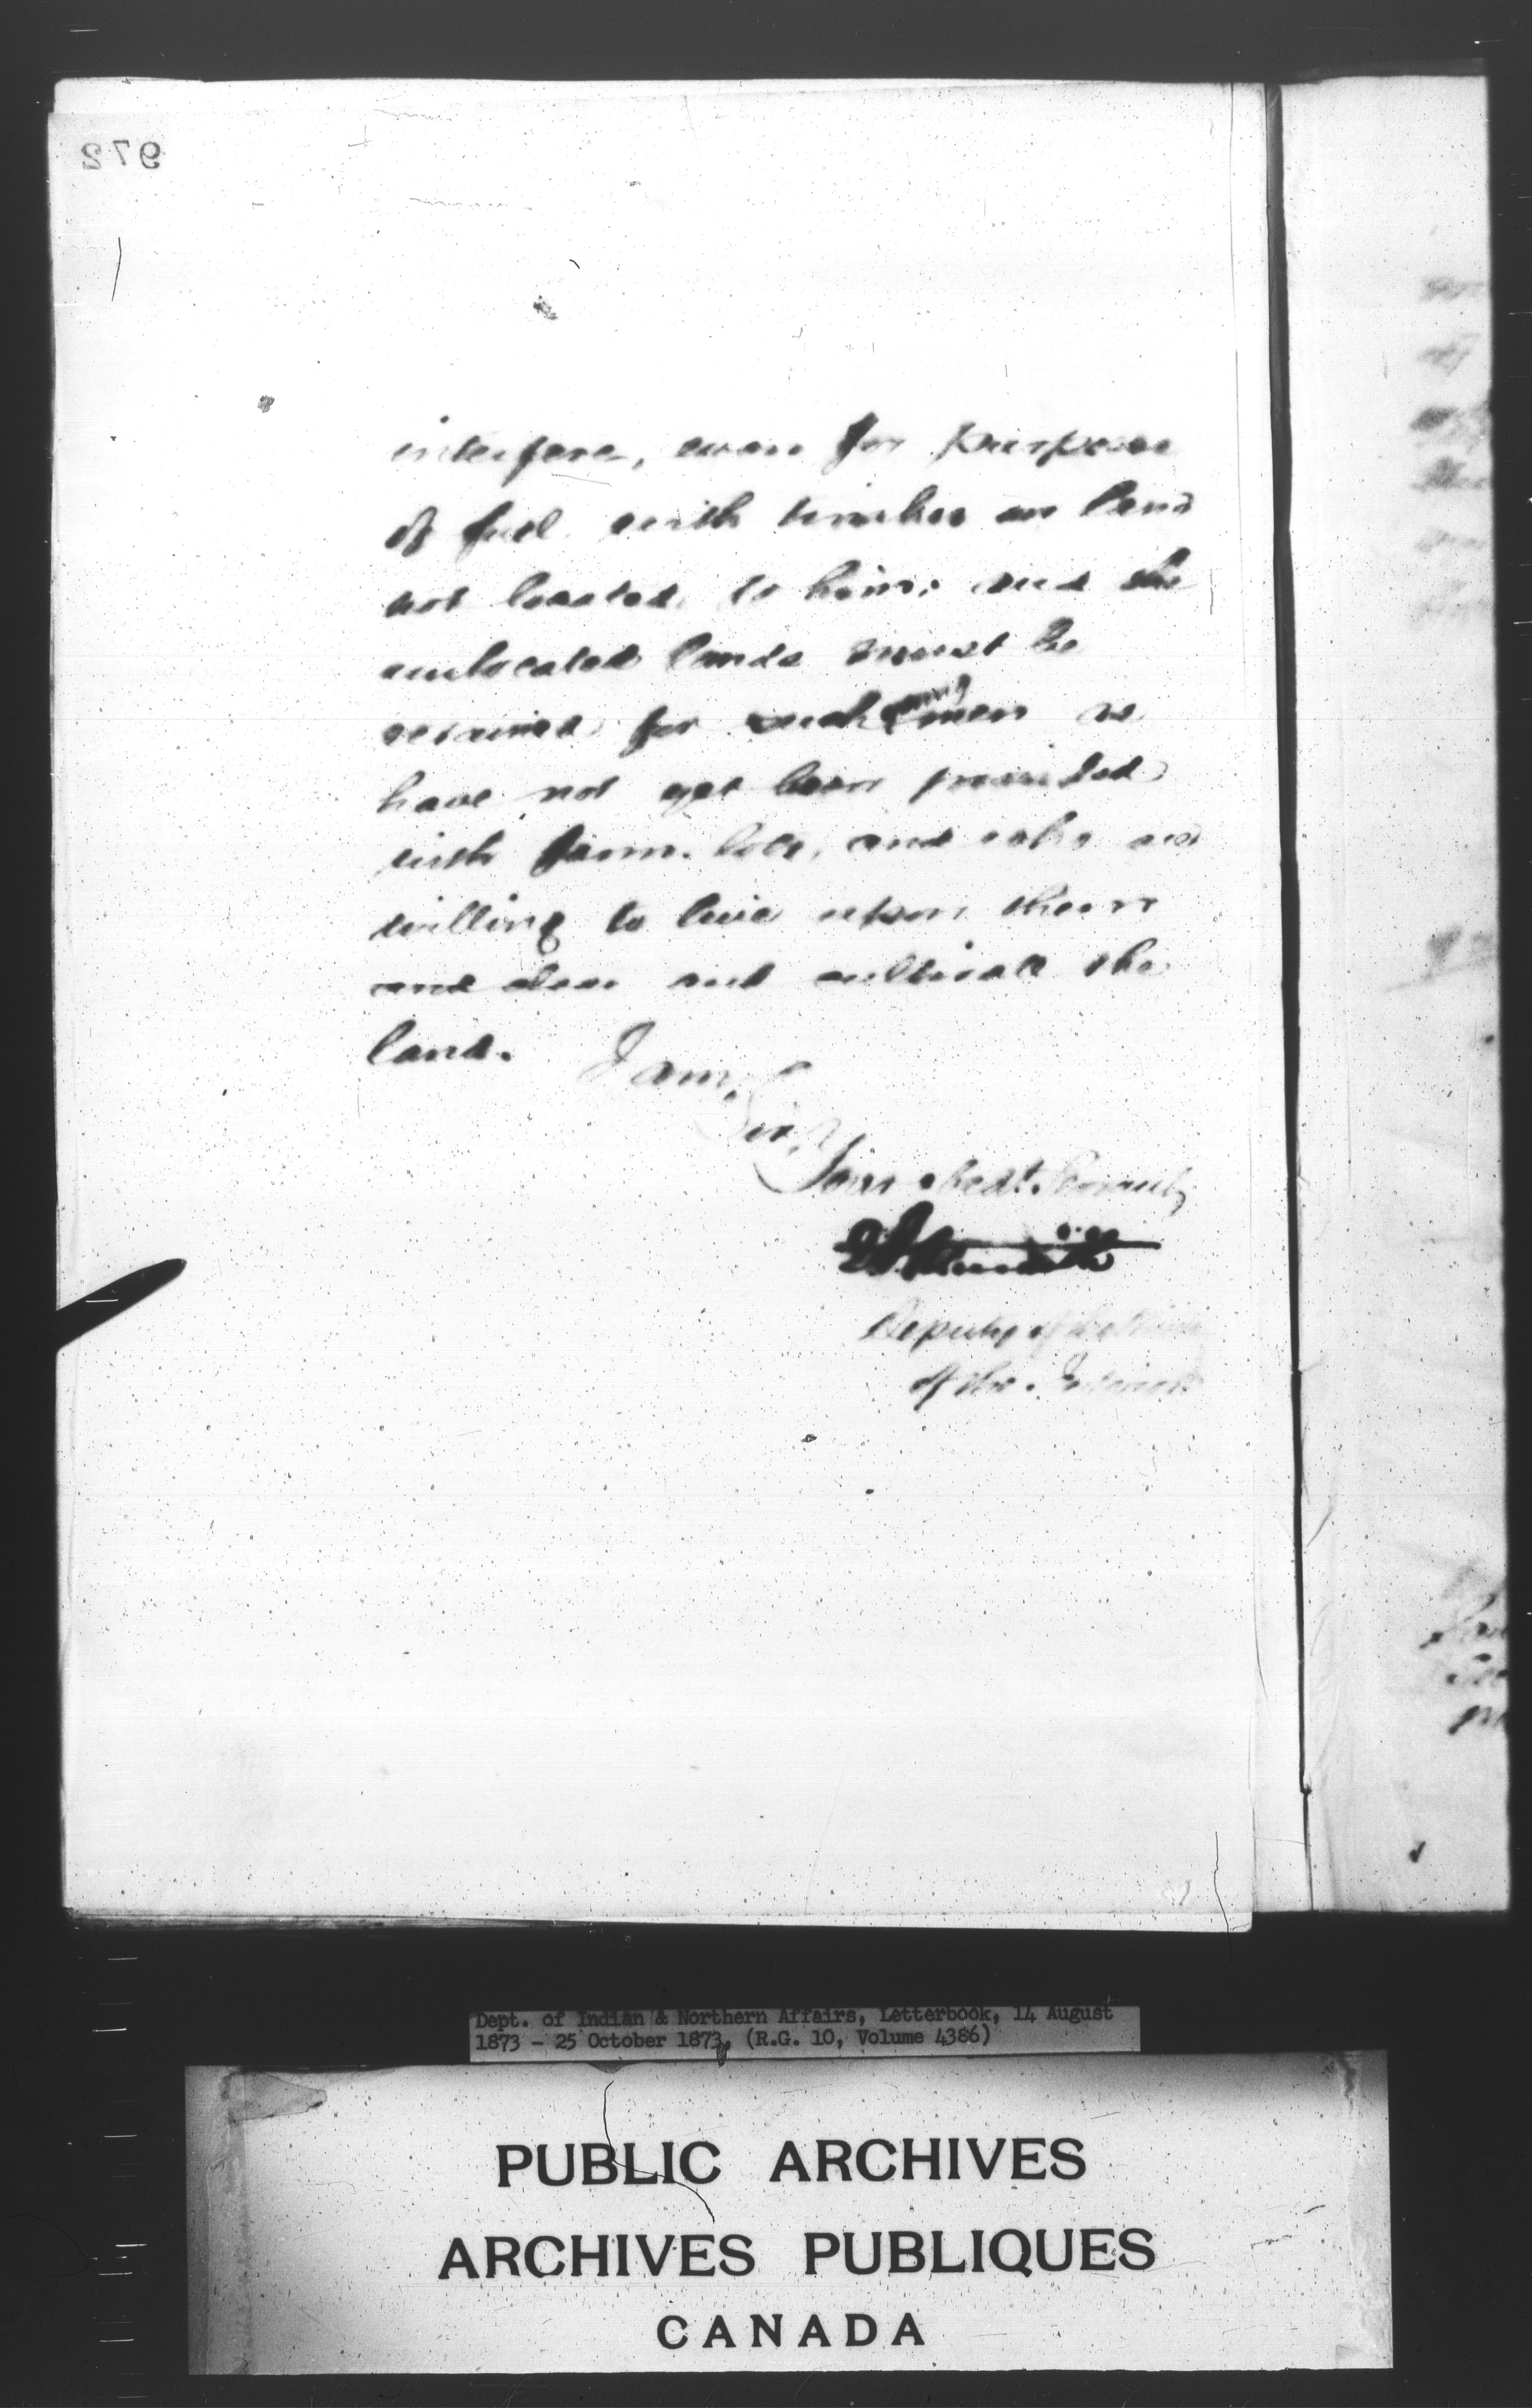 972
interfere, even for purposes
of fuel with timber on land
not located to him; and the
unlocated lands must be
retained for such young men as
have not yet been provided
with farm lots, and who are
willing to live upon them
and clear and cultivate the
land.
I am,
Sir,
Your obedt. Servant,
Deputy of the Minister
of the Interior
Dept. of Indian & Northern Affairs, Letterbook, 14 August
1873 - 25 October 1873, (R.G. 10, Volume 4386)
PUBLIC ARCHIVES
ARCHIVES PUBLIQUES
CANADA